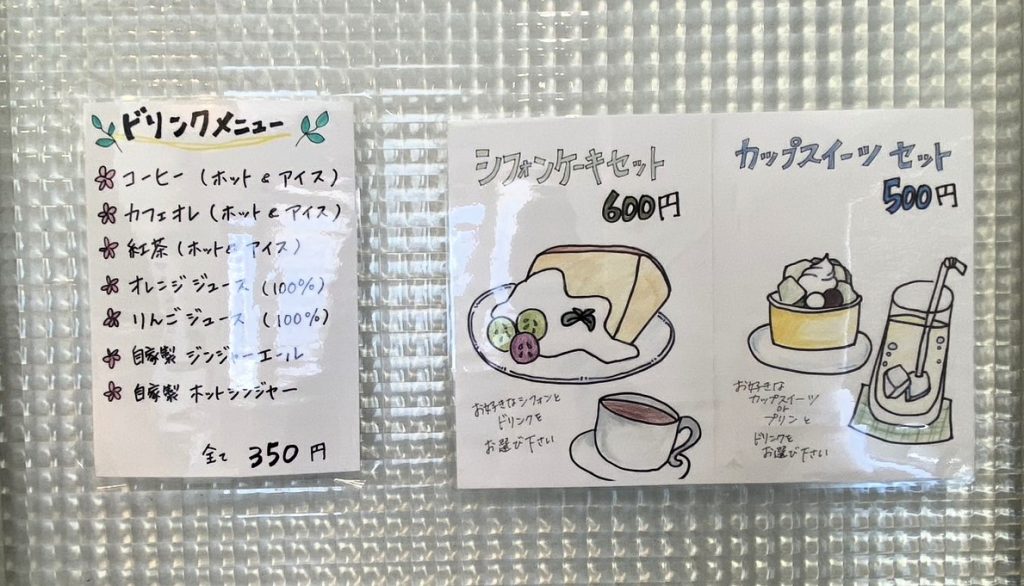 ドリンクメニュー
コーヒー (ホット & アイス)
カフェオレ (ホット & アイス)
紅茶 (ホット & アイス)
オレンジジュース (100%)
りんごジュース (100%)
自家製 ジンジャーエール
自家製 ホットジンジャー
全て 350円
シフォンケーキセット
600円
お好きなシフォンと
ドリンクを
お選び下さい
カップスイーツ セット
500円
お好きな
カップスイーツ
or
プリンと
ドリンクを
お選び下さい